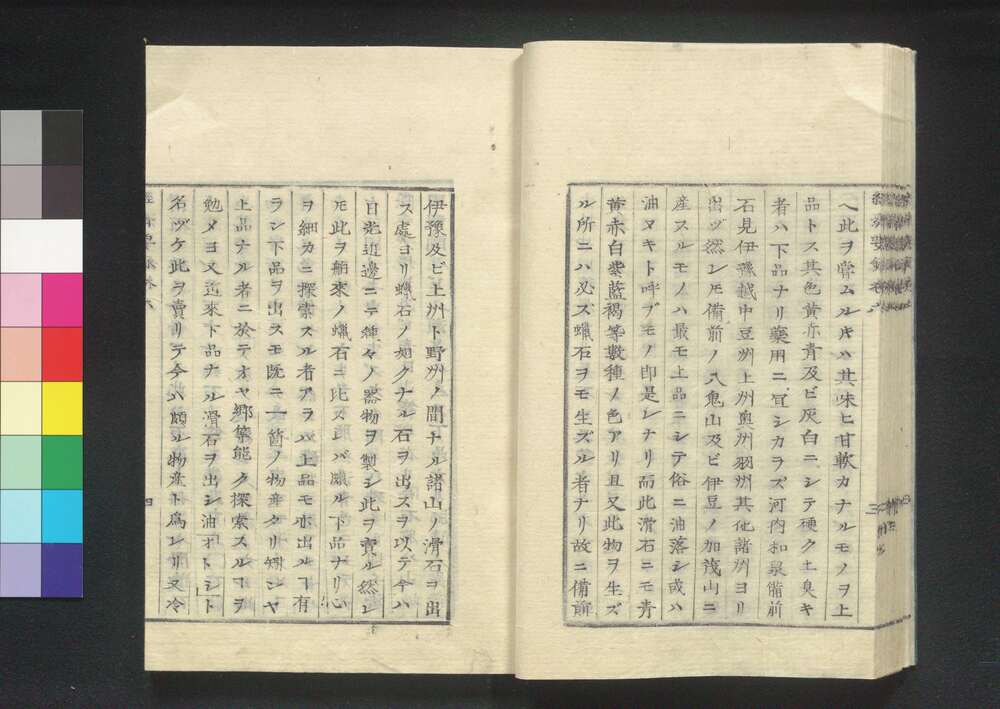 ヘ此ヲ甞ムルキハ其味ヒ甘軟カナルモノヲ上
品トス其色黄亦青及ビ灰白ニシテ硬ク土臭キ
者ハ下品ナリ藥用ニ冝シカラズ河内和泉備前
石見伊豫越中豆洲上洲奥洲羽洲其他諸洲ヨリ
出ヅ然レモ備前ノ八鬼山及ビ伊豆ノ加茂山ニ
産スルモノハ最モ上品ニシテ俗ニ油落シ或ハ
油ヌキト呼ブモノ即是レナリ而此滑石ニモ青
黄赤白紫藍褐等數種ノ色アリ且又此物ヲ生ズ
ル所ニハ必ズ蠟石ヲモ生ズル者ナリ故ニ備前
伊豫及ビ上洲ト野洲ノ間ナル諸山ノ滑石ヲ出
ス處ヨリ蠟石ノ如クナル石ヲ出スヲ以テ今ハ
日光近邊ニテ種々ノ器物ヲ製シ此ヲ賣ル然レ
モ此ヲ舶來ノ蠟石ニ比スレバ頗ル下品ナリ心
ヲ細カニ探索スル者アラハ上品モ亦出ルヿ有
ラン下品ヲ出スモ既ニ一箇ノ物産タリ矧ンヤ
上品ナル者ニ於テオヤ郷導能ク探索スルヿヲ
勉メヨ又近來下品ナル滑石ヲ出シ油オトシト
名ヅケ此ヲ賣リテ今ハ頗ル物産ト爲レリ又冷
四